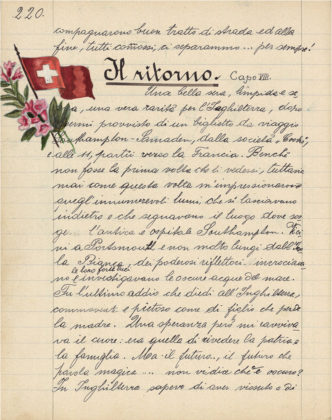 220.
compagnarono buon tratto di strada ed alla
fine, tutti comossi, ci separammo... per sempre!
Il ritorno. Capo VIII.
Una bella sera, limpida e se
ra, una vera rarità per l'Inghilterra, dopo
provvisto di un biglietto da viaggio
Southampton-Samaden, dalla società Cook,
alle 11, partii verso la Francia. Benchè
non fosse la prima volta che li vedessi, tuttavia
mai come questa volta m'impressionarono
quegli innumerevoli lumi, che si lasciavano
indietro e che segnavano il luogo dove sor
ge l'antica e ospitale Southampton. Vici
ni a Portsmouth e non molto lungi dall'Iso
la Bianca, dei poderosi riflettori incrociava
no le loro forti luci e investigavano le oscure acque del mare.
Fu l'ultimo addio che diedi all'Inghilterra,
commovente e pietoso come di figlio che perde
la madre. Una speranza però mi ravviva
va il cuore: era quella di rivedere la patria e
la famiglia. Ma il futuro, il futuro che
parola magica.... non vidia che è oscuro?
In Inghilterra sapevo di aver vissuto e di